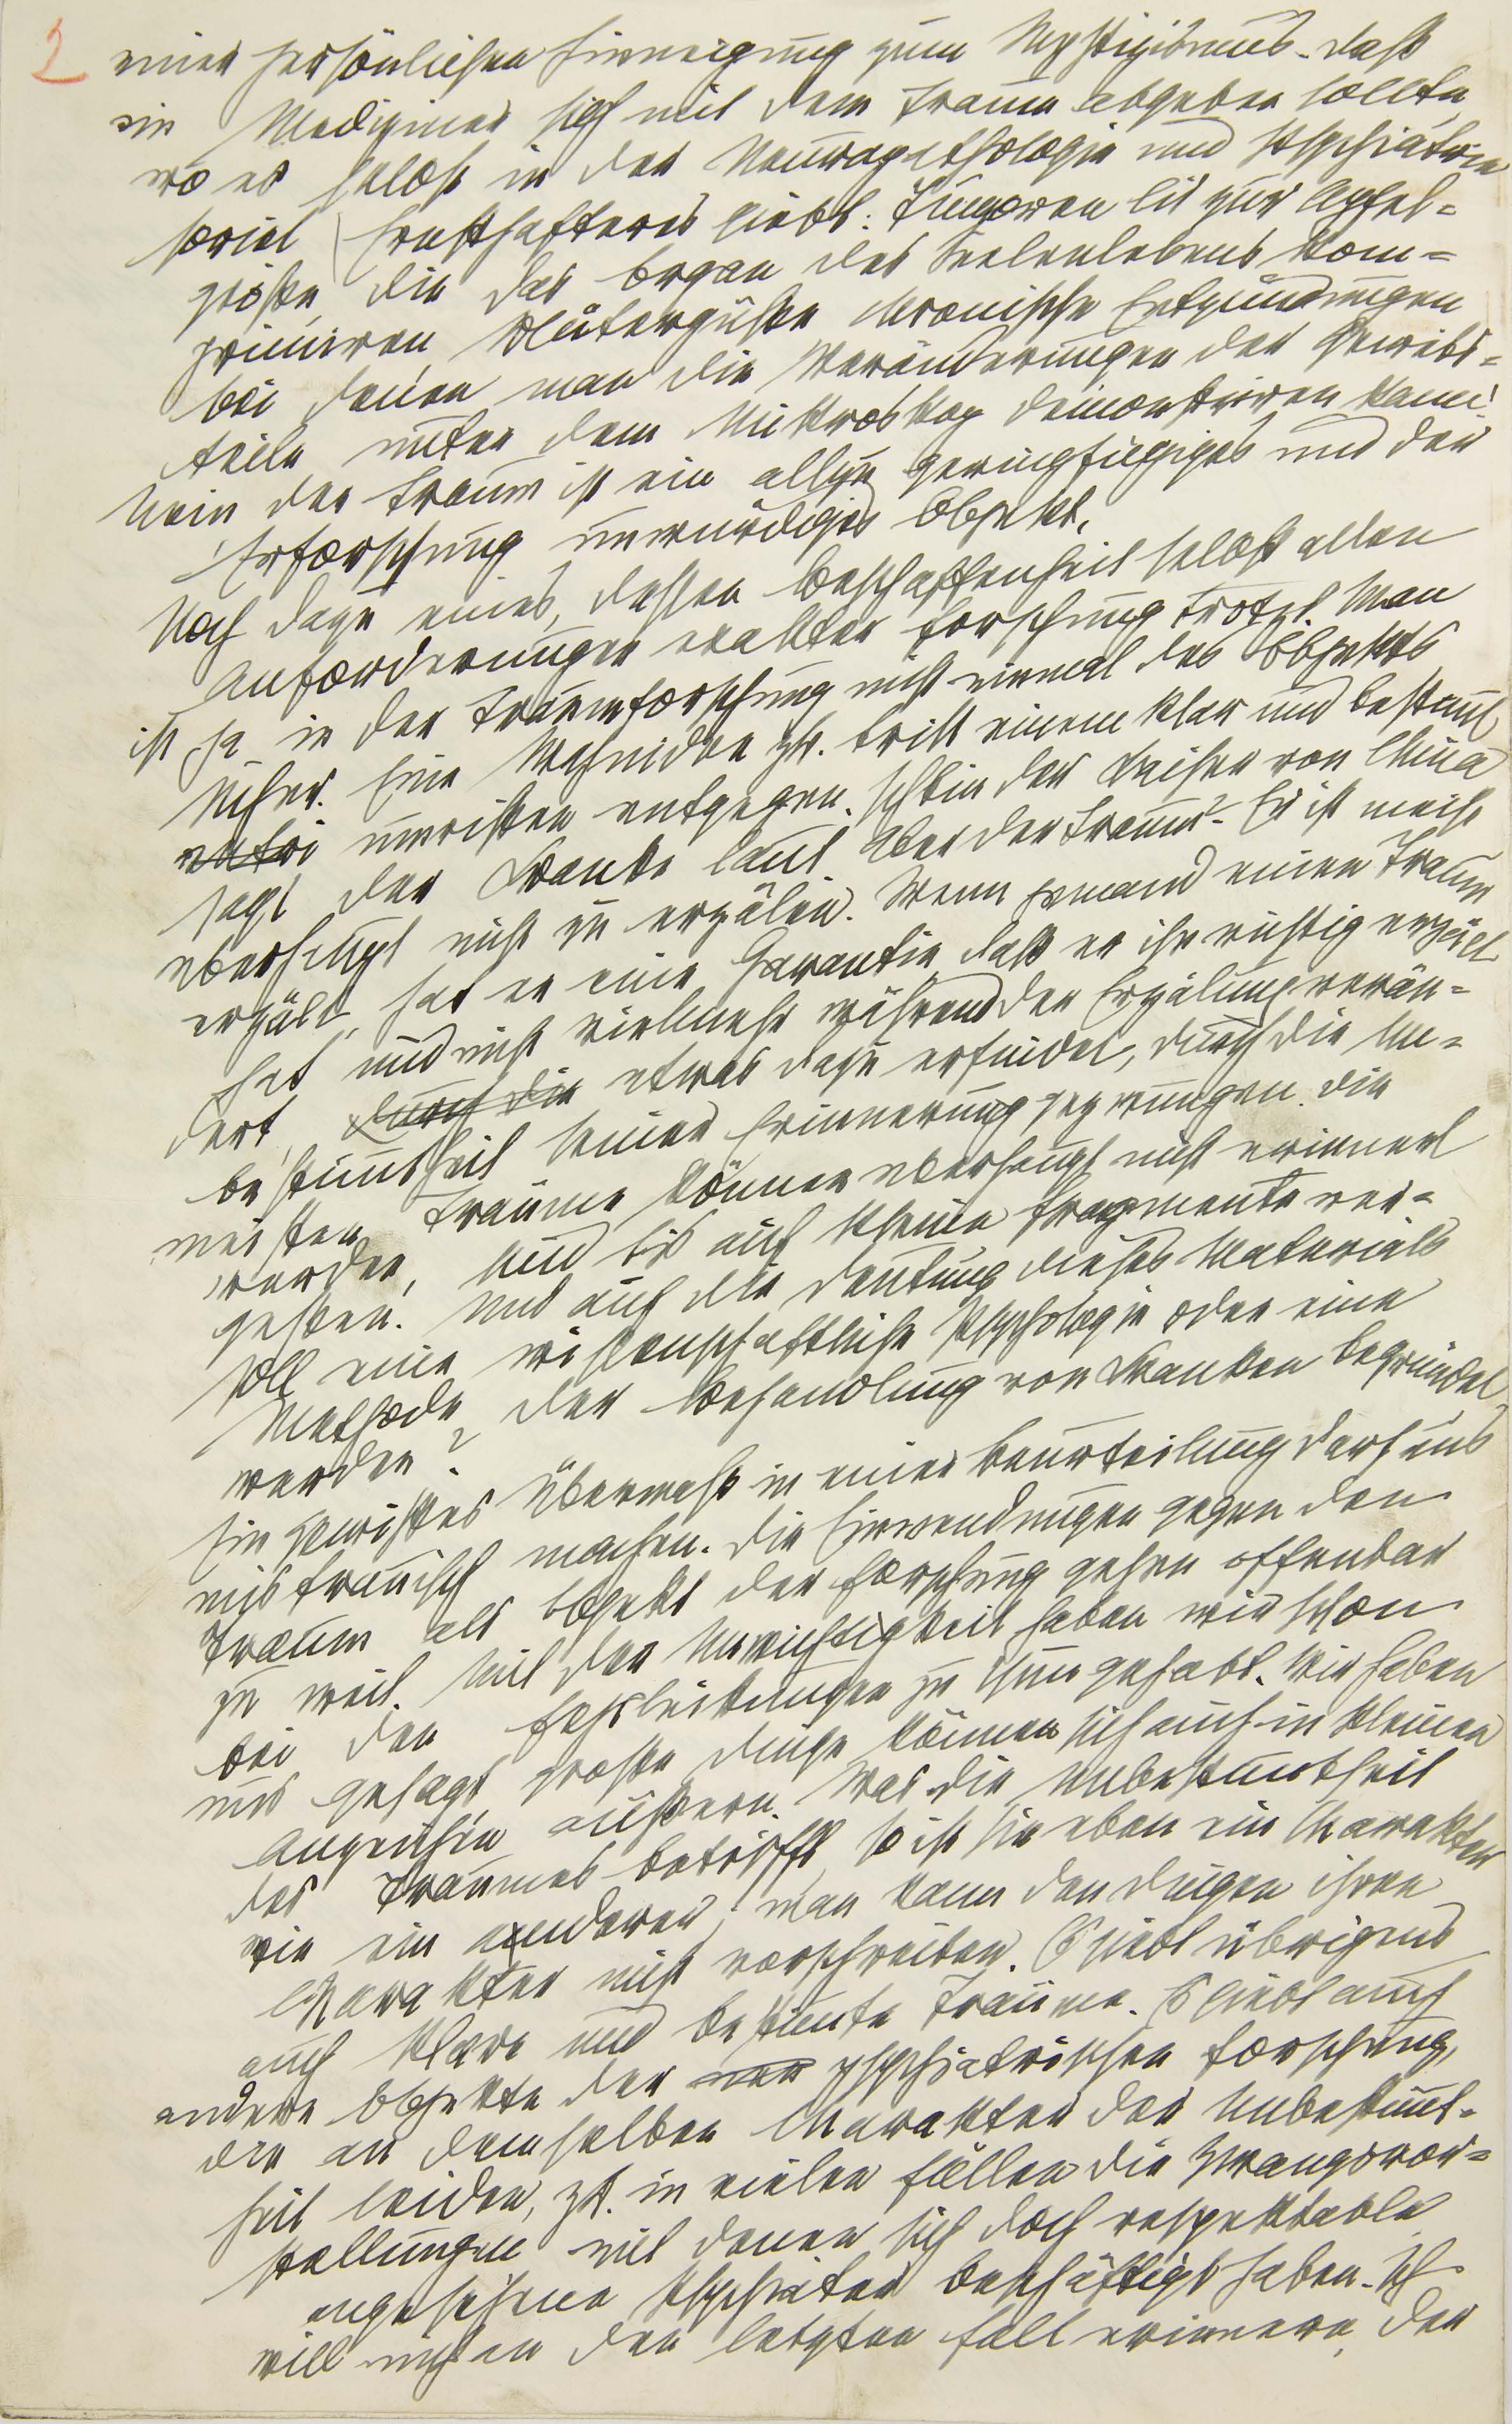 2
einer persönlichen Hinneigung zum Mystizismus. Daß
ein Mediziner sich mit dem Traum abgeben sollte,
wo es selbst in der Neuropathologie und Psychiatrie
soviel Ernsthafteres giebt: Tumoren bis zur Apfel-
größe, die das Organ des Seelenlebens kom-
primiren, Blutergüße chronische Entzündungen
bei denen man die Veränderungen der Gewebs-
teile unter dem Mikroskop demonstriren kann!
Nein der Traum ist ein allzu geringfügiges und der
Erforschung unwürdiges Objekt.
Noch dazu eines, dessen Beschaffenheit selbst allen
Anforderungen exakter Forschung trotzt. Man
ist ja in der Traumforschung nicht einmal des Objekts
sicher. Eine Wahnidee zb. tritt einem klar und bestimt
umrissen entgegen. Ich bin der Kaiser von China
sagt der Kranke laut. Aber der Traum? Er ist meist
überhaupt nicht zu erzälen. Wenn jemand einen Traum
erzält, hat er eine Garantie daß er ihn richtig erzält
hat und nicht vielmehr während der Erzälung verän-
dert, durch die etwas dazu erfindet, durch die Un-
bestimtheit seiner Erinnerung gezwungen. Die
meisten Träume können überhaupt nicht erinnert
werden, sind bis auf kleine Fragmente ver-
gessen. Und auf die Deutung dieses Materials
soll eine wissenschaftliche Psychologie oder eine
Methode der Behandlung von Kranken begründet
werden?
Ein gewisses Übermaß in einer Beurteilung darf uns
mistrauisch machen. Die Einwendungen gegen den
Traum als Objekt der Forschung gehen offenbar
zu weit. Mit der Unwichtigkeit haben wir schon
bei den Fehlleistungen zu thun gehabt. Wir haben
uns gesagt große Dinge können sich auch in kleinen
Anzeichen äußern. Was die Unbestimtheit
des Traumes betrifft, so ist sie eben ein Charakter
wie ein anderer; man kann den Dingen ihren
Charakter nicht vorschreiben. Es giebt übrigens
auch klare und bestimte Träume. Es giebt auch
andere Objekte der psychiatrischen Forschung,
die an demselben Charakter der Unbestimt-
heit leiden, zb. in vielen Fällen die Zwangsvor-
stellungen mit denen sich doch respektable
angesehene Psychiater beschäftigt haben. Ich
will mich an den letzten Fall erinnern, der